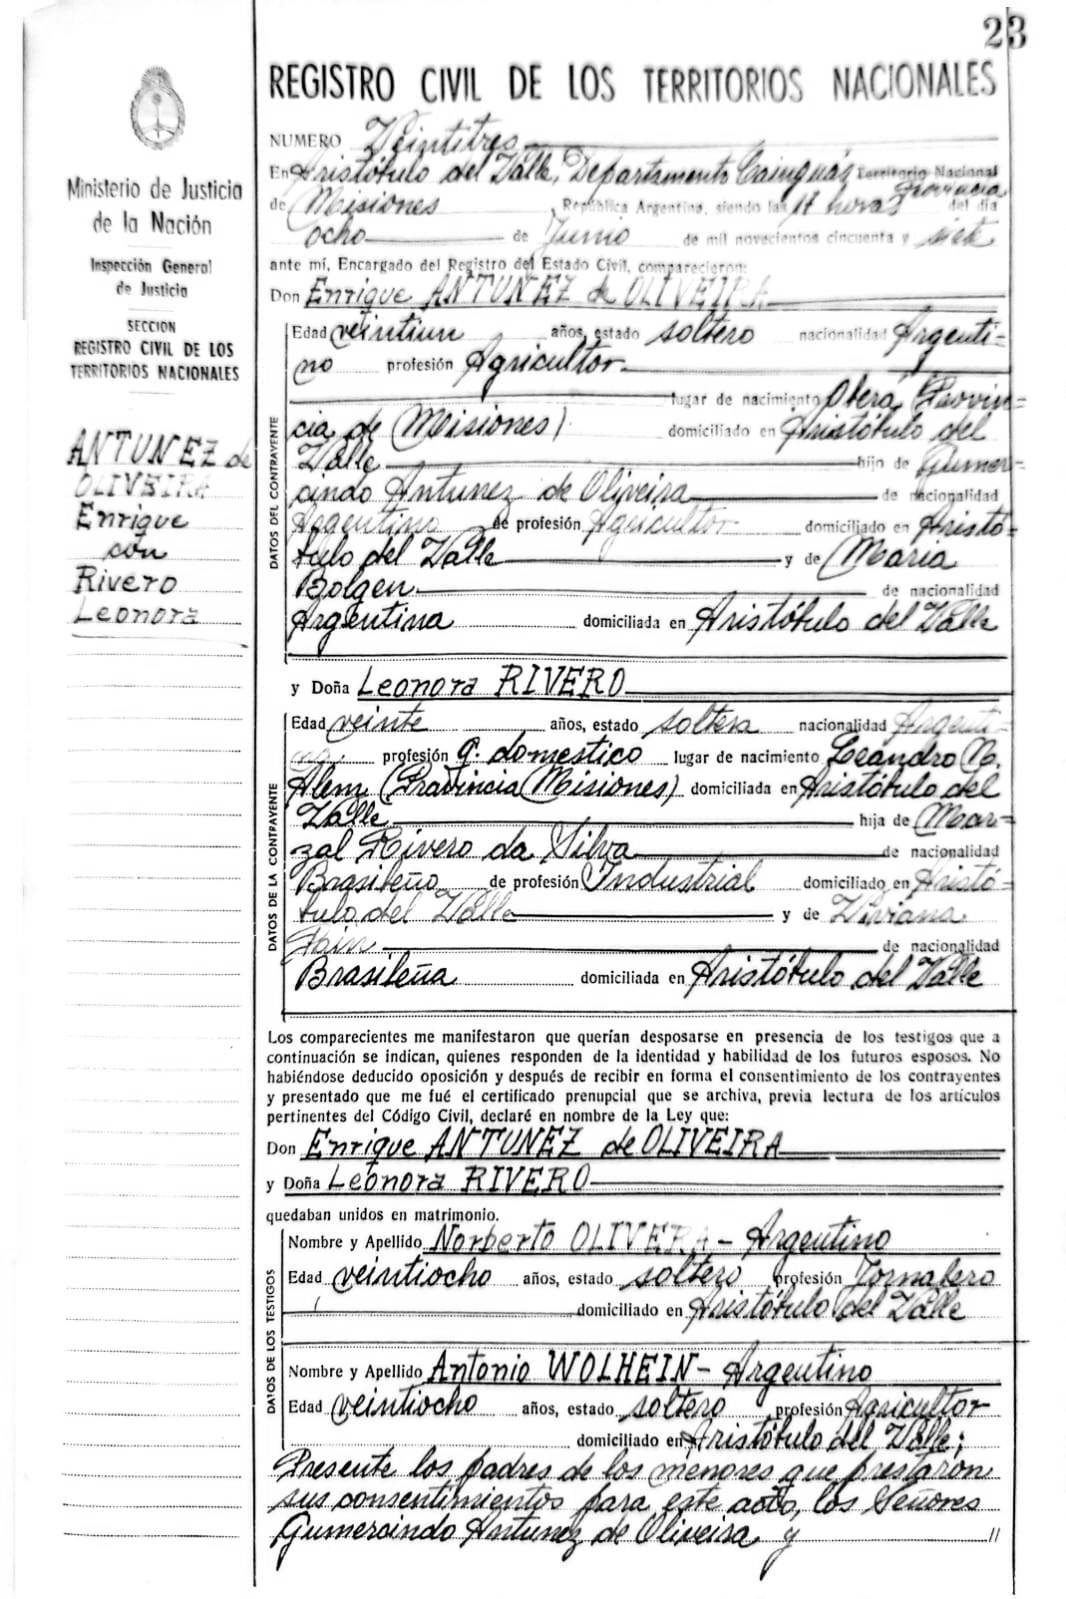 23
REGISTRO CIVIL DE LOS TERRITORIOS NACIONALES
Ministerio de Justicia
de la Nación
Inspección General
de Justicia
SECCION
REGISTRO CIVIL DE LOS
TERRITORIOS NACIONALES
ANTUNEZ de
OLIVEIRA
Enrique
con
Rivero
Leonora
NUMERO Veintitres
En Aristóbulo del Valle, Departamento Cainguás Territorio Nacional
Provincia
de Misiones, República Argentina, siendo las horas del día
ocho de Junio de mil novecientos cincuenta y siete
ante mí, Encargado del Registro del Estado Civil, comparecieron:
Don Enrique ANTUNEZ de OLIVEIRA
DATOS DEL CONTRAYENTE
Edad veintiun años, estado soltero nacionalidad Argenti=
no profesión Agricultor
lugar de nacimiento Oberá (Provin=
cia de Misiones) domiciliado en Aristóbulo del
Valle hijo de Gumer=
cindo Antunez de Oliveira de nacionalidad
Argentino de profesión Agricultor domiciliado en Aristó=
bulo del Valle y de María
Bolgen de nacionalidad
Argentina domiciliada en Aristóbulo del Valle
y Doña Leonora RIVERO
DATOS DE LA CONTRAYENTE
Edad veinte años, estado soltera nacionalidad Argenti=
na profesión q. domestico lugar de nacimiento Leandro N.
Alem (Provincia Misiones) domiciliada en Aristóbulo del
Valle hija de Mar=
zal Rivero da Silva de nacionalidad
Brasileño de profesión Industrial domiciliado en Aristó=
bulo del Valle y de Viviana
de nacionalidad
Brasileña domiciliada en Aristóbulo del Valle
Los comparecientes me manifestaron que querían desposarse en presencia de los testigos que a
continuación se indican, quienes responden de la identidad y habilidad de los futuros esposos. No
habiéndose deducido oposición y después de recibir en forma el consentimiento de los contrayentes
y presentado que me fué el certificado prenupcial que se archiva, previa lectura de los artículos
pertinentes del Código Civil, declaré en nombre de la Ley que:
Don Enrique ANTUNEZ de OLIVEIRA
y Doña Leonora RIVERO
quedaban unidos en matrimonio.
DATOS DE LOS TESTIGOS
Nombre y Apellido Norberto OLIVERA - Argentino
Edad veintiocho años, estado soltero profesión Jornalero
domiciliado en Aristóbulo del Valle
Nombre y Apellido Antonio WOLHEIN - Argentino
Edad veintiocho años, estado soltero profesión Agricultor
domiciliado en Aristóbulo del Valle;
Presente los padres de los menores que prestaron
sus consentimientos para este acto, los Señores
Gumercindo Antunez de Oliveira y //